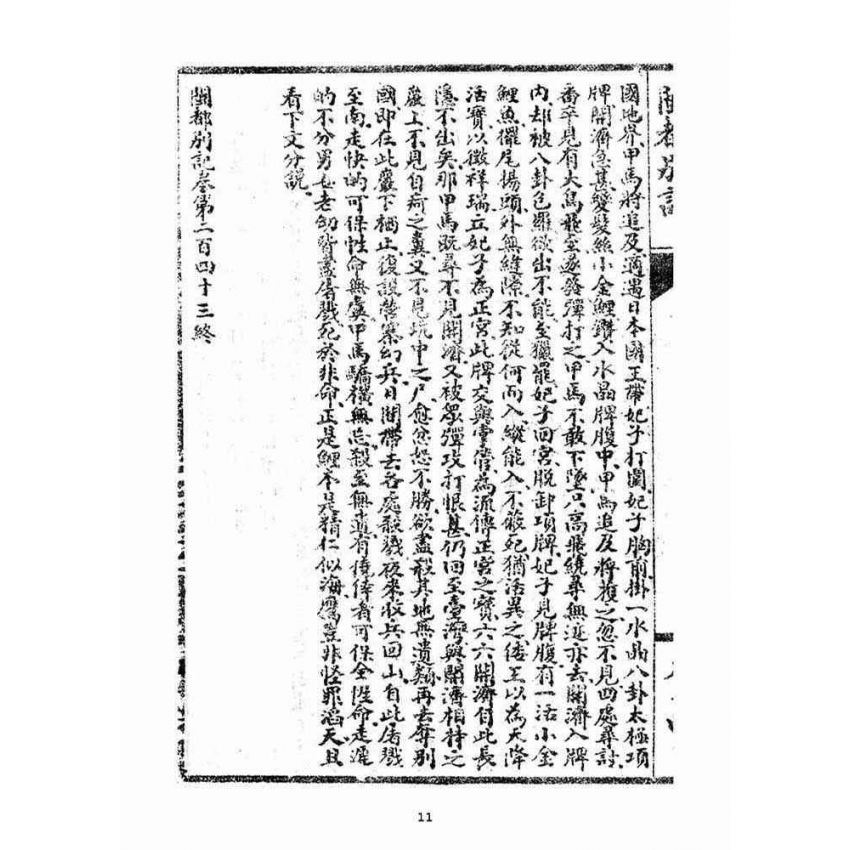 閩都別記
國地界甲馬將追及適遇日本國王帶妃子打圍妃子胸前掛一水晶八卦太極項
牌開濟急甚變髮絲小金鯉鑽入水晶牌腹中甲馬追及將獲之忽不見四處尋討
番卒見有大鳥飛至遂發彈打之甲馬不敢下墜只高飛繞尋無跡亦去開濟入牌
內却被八卦包羅欲出不能至獵罷妃子回宮脫卸項牌妃子見牌腹有一活小金
鯉魚擺尾揚頭外無縫隙不知從何而入縱能入不餓死猶活異之倭王以為天降
活寶以徵祥瑞立妃子為正宮此牌交與掌管為流傳正宮之寶六六開濟自此長
隱不出矣那甲馬既尋不見開濟又被眾彈攻打恨甚仍回至臺灣與開濟相持之
巖上不見自疴之糞又不見坑中之尸愈忿怒不勝欲盡殺其地無遺類再去奪別
國即在此巖下栖止復設營寨幻兵日間帶去各處殺戮夜來收兵回山自此屠戮
至南走快的可保性命無虞甲馬驕橫無忌殺至無遺有僥倖者可保全性命走遲
的不分男女老幼皆盡屠戮死於非命正是鯉本是猜仁似海鷹豈非怪罪滔天且
看下文分說
閩都別記卷第二百四十三終
11